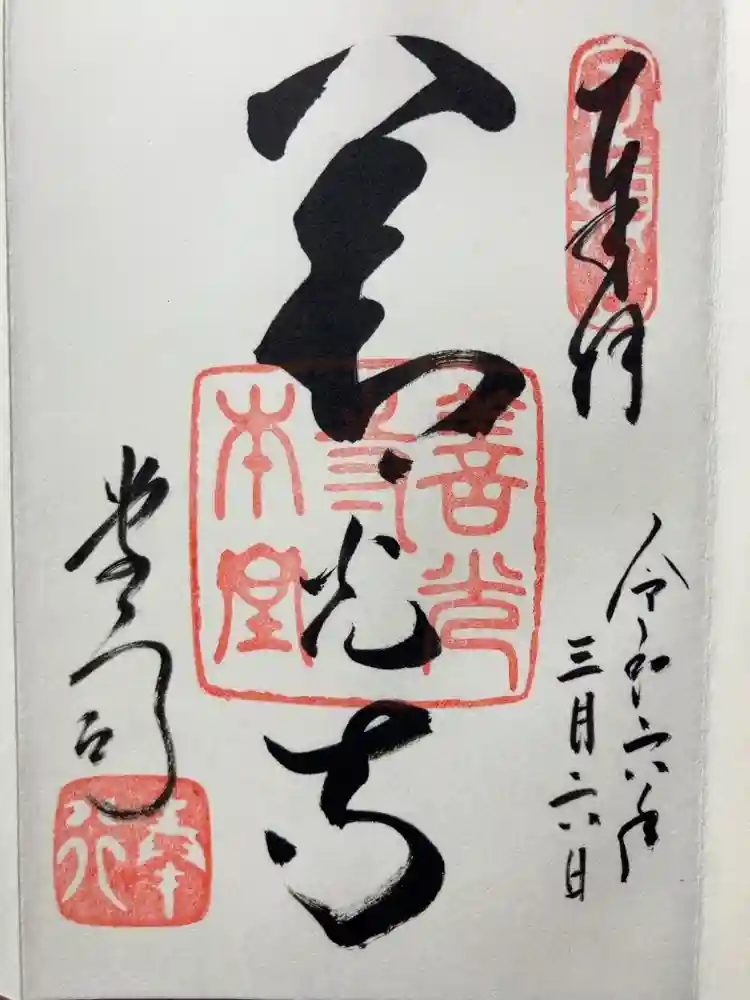 奉拝
令和六年
三月六日
善光寺
善光寺本堂
堂司
奉行